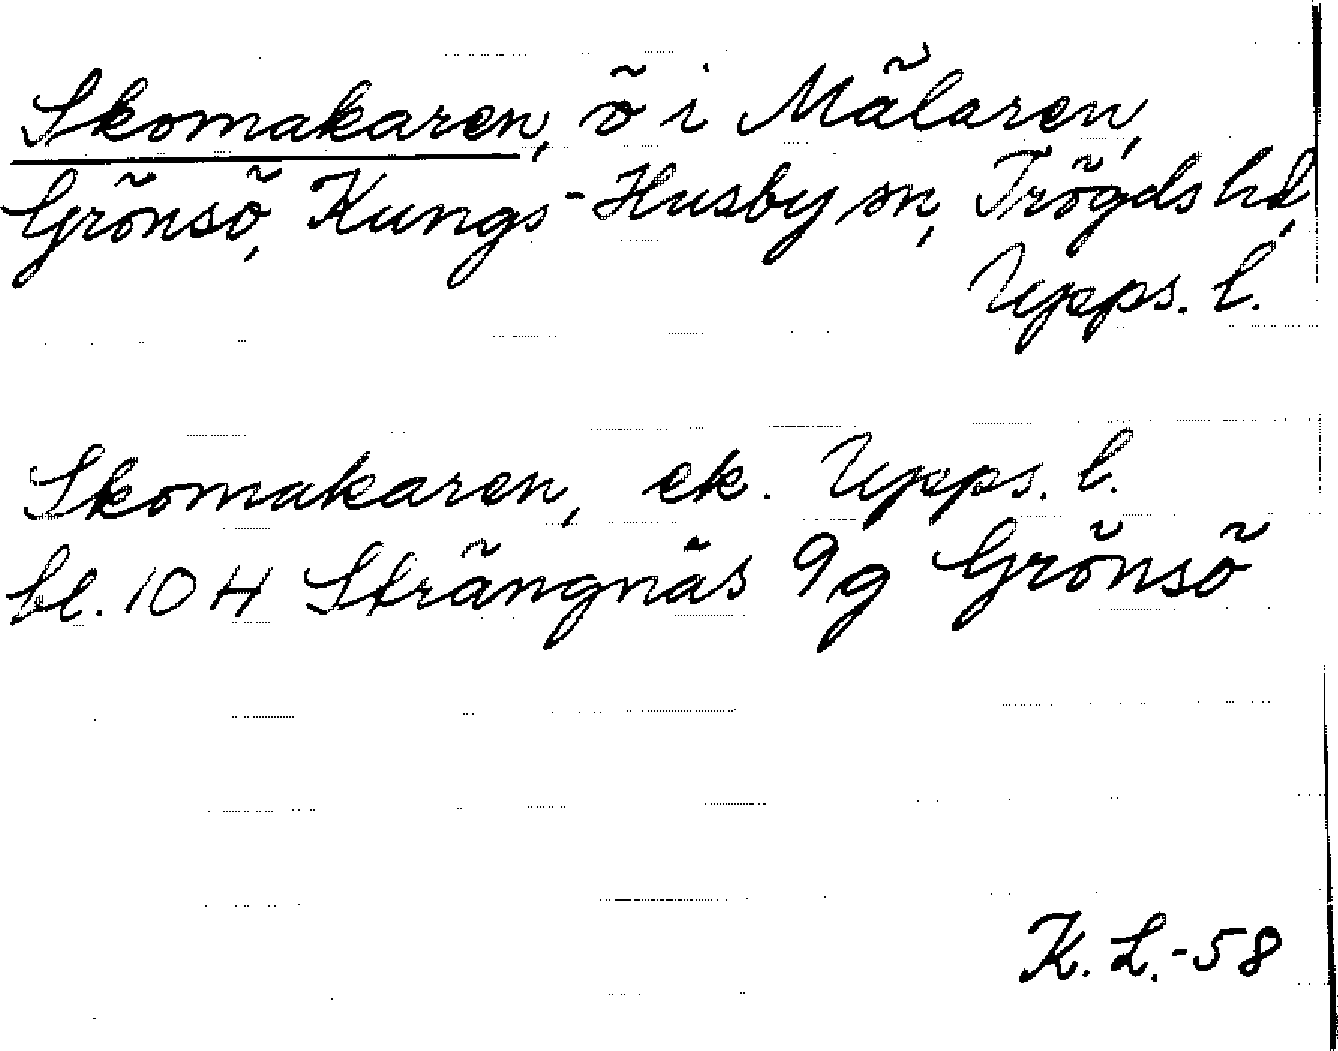 Skomakaren, ö i Mälaren,
Grönsö, Kungs-Husby sn, Trögds hd,
Upps. l.
Skomakaren, ek. Upps. l.
bl. 104 Strängnäs 9g Grönsö
K. L. -58